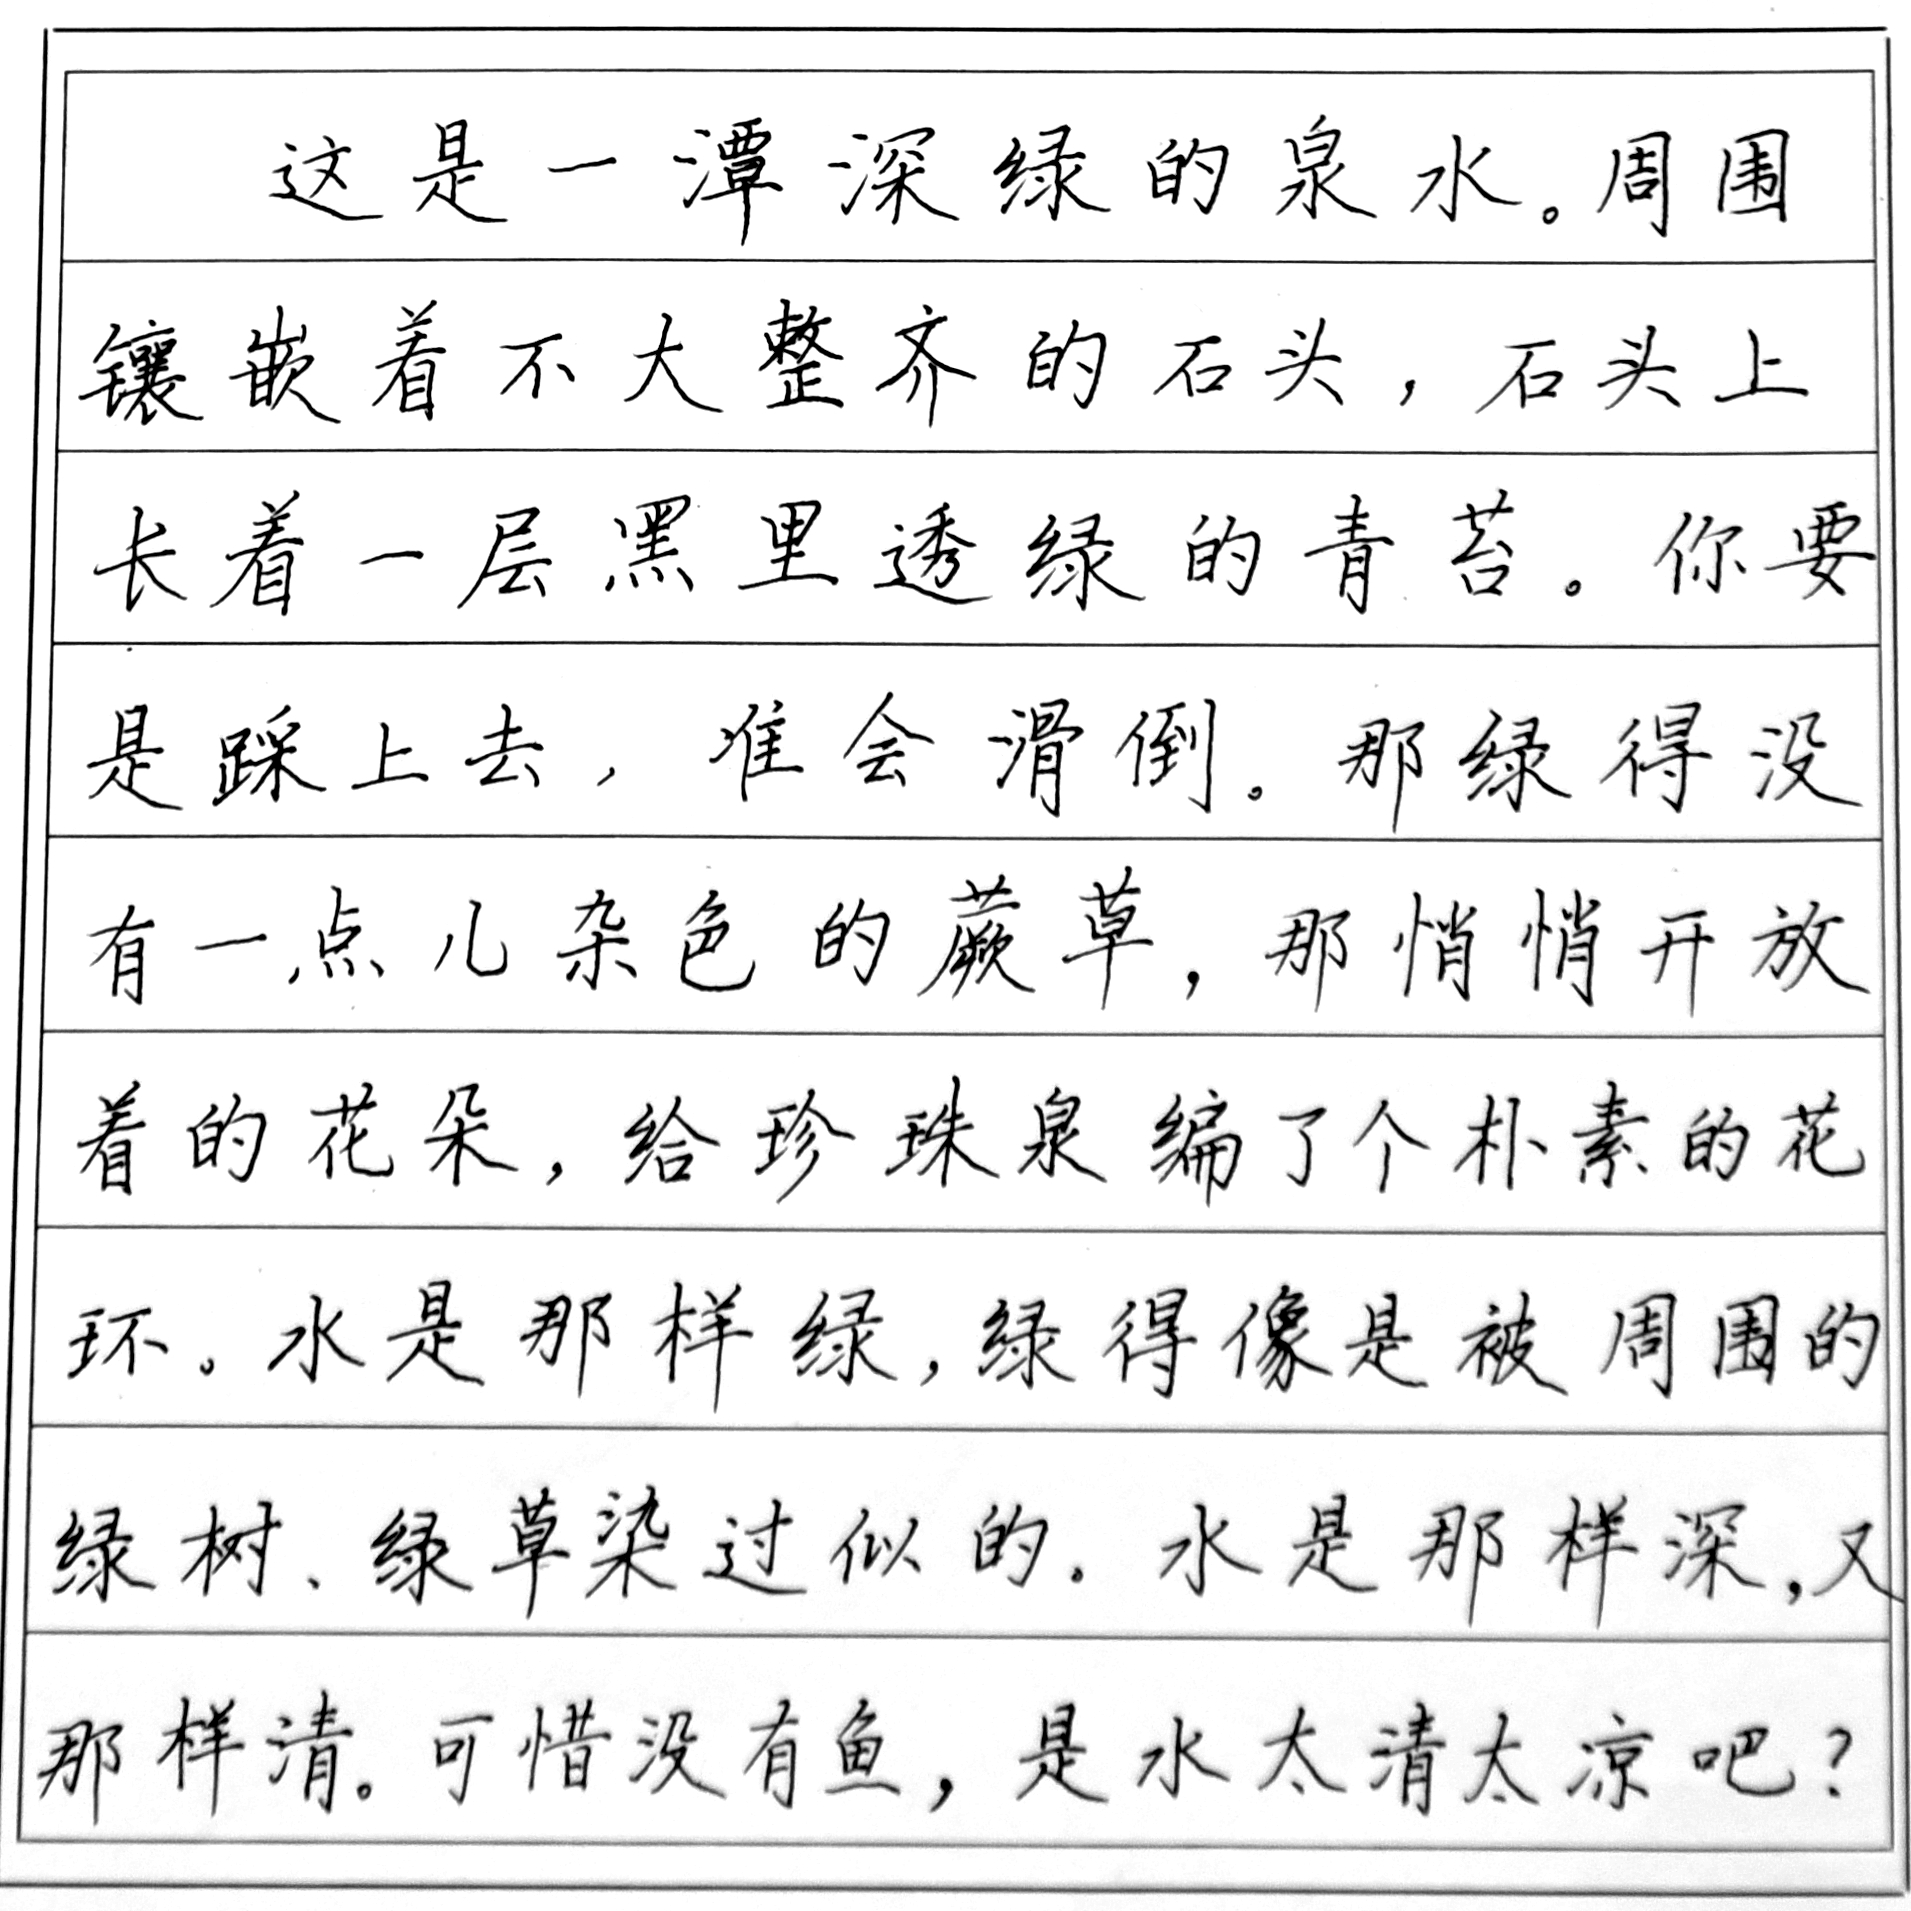 这是一潭深绿的泉水。周围
镶嵌着不大整齐的石头，石头上
长着一层黑里透绿的青苔。你要
是踩上去，准会滑倒。那绿得没
有一点儿杂色的蕨草，那悄悄开放
着的花朵，给珍珠泉编了个朴素的花
环。水是那样绿，绿得像是被周围的
绿树、绿草染过似的。水是那样深，又
那样清。可惜没有鱼，是水太清太凉吧？